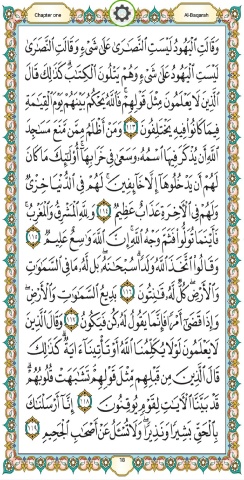 Chapter one
Al-Baqarah
وَقَالَتِ ٱلْيَهُودُ لَيْسَتِ ٱلنَّصَـٰرَىٰ عَلَىٰ شَىْءٍ وَقَالَتِ ٱلنَّصَـٰرَىٰ
لَيْسَتِ ٱلْيَهُودُ عَلَىٰ شَىْءٍ وَهُمْ يَتْلُونَ ٱلْكِتَـٰبَ ۗ كَذَٰلِكَ قَالَ
ٱلَّذِينَ لَا يَعْلَمُونَ مِثْلَ قَوْلِهِمْ ۚ فَٱللَّهُ يَحْكُمُ بَيْنَهُمْ يَوْمَ ٱلْقِيَـٰمَةِ
فِيمَا كَانُوا۟ فِيهِ يَخْتَلِفُونَ ١١٣ وَمَنْ أَظْلَمُ مِمَّن مَّنَعَ مَسَـٰجِدَ
ٱللَّهِ أَن يُذْكَرَ فِيهَا ٱسْمُهُۥ وَسَعَىٰ فِى خَرَابِهَآ ۚ أُو۟لَـٰٓئِكَ مَا كَانَ
لَهُمْ أَن يَدْخُلُوهَآ إِلَّا خَآئِفِينَ ۚ لَهُمْ فِى ٱلدُّنْيَا خِزْىٌ
وَلَهُمْ فِى ٱلْـَٔاخِرَةِ عَذَابٌ عَظِيمٌ ١١٤ وَلِلَّهِ ٱلْمَشْرِقُ وَٱلْمَغْرِبُ ۚ
فَأَيْنَمَا تُوَلُّوا۟ فَثَمَّ وَجْهُ ٱللَّهِ ۚ إِنَّ ٱللَّهَ وَٰسِعٌ عَلِيمٌ ١١٥
وَقَالُوا۟ ٱتَّخَذَ ٱللَّهُ وَلَدًا ۗ سُبْحَـٰنَهُۥ ۖ بَل لَّهُۥ مَا فِى ٱلسَّمَـٰوَٰتِ
وَٱلْأَرْضِ ۖ كُلٌّ لَّهُۥ قَـٰنِتُونَ ١١٦ بَدِيعُ ٱلسَّمَـٰوَٰتِ وَٱلْأَرْضِ ۖ
وَإِذَا قَضَىٰٓ أَمْرًا فَإِنَّمَا يَقُولُ لَهُۥ كُن فَيَكُونُ ١١٧ وَقَالَ ٱلَّذِينَ
لَا يَعْلَمُونَ لَوْلَا يُكَلِّمُنَا ٱللَّهُ أَوْ تَأْتِينَآ ءَايَةٌ ۗ كَذَٰلِكَ
قَالَ ٱلَّذِينَ مِن قَبْلِهِم مِّثْلَ قَوْلِهِمْ ۘ تَشَـٰبَهَتْ قُلُوبُهُمْ ۗ
قَدْ بَيَّنَّا ٱلْـَٔايَـٰتِ لِقَوْمٍ يُوقِنُونَ ١١٨ إِنَّآ أَرْسَلْنَـٰكَ
بِٱلْحَقِّ بَشِيرًا وَنَذِيرًا ۖ وَلَا تُسْـَٔلُ عَنْ أَصْحَـٰبِ ٱلْجَحِيمِ ١١٩
18